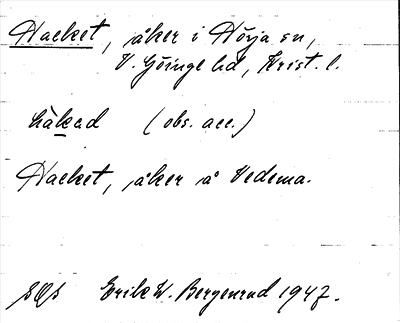 Hacket, åker i Hörja sn,
V. Göinge hd, Krist. l.
håkad (obs. acc.)
Hacket, åker å Vedema.
SOS Erik W. Bergenrud 1947.